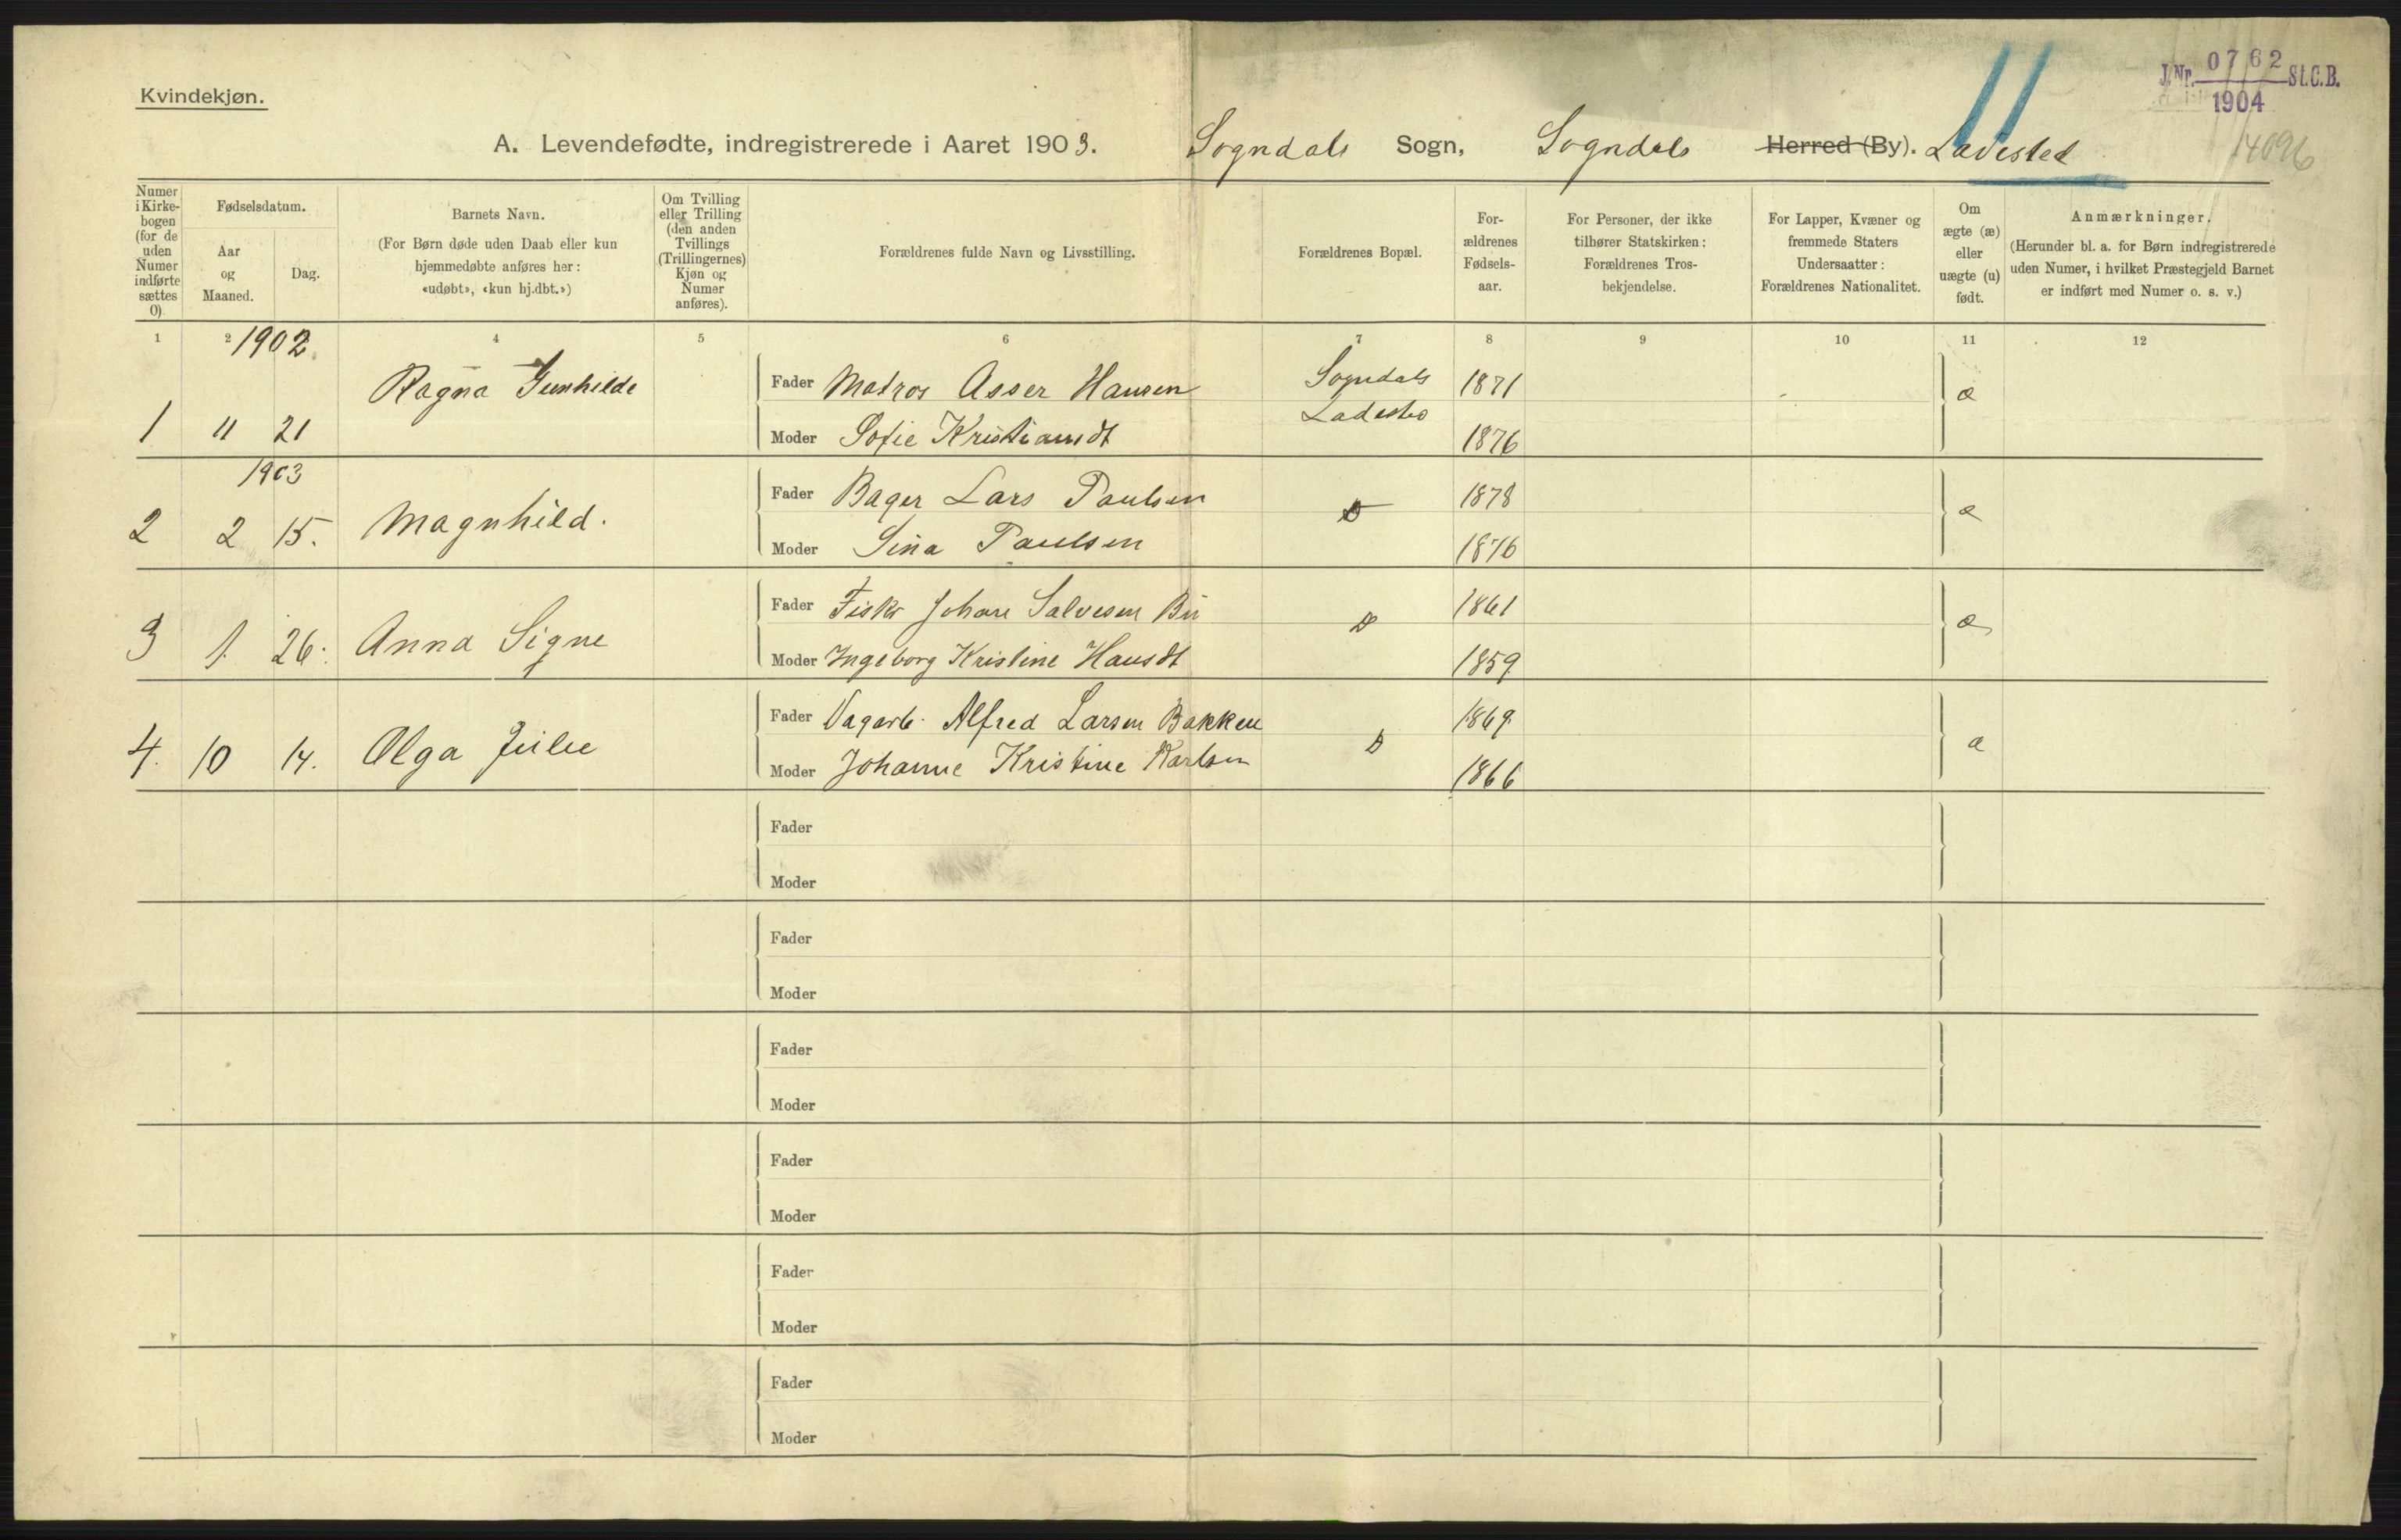 Kvindekjøn.
J. Nr. 0762 St.C.B.
1904
11
14096
A. Levendefødte, indregistrerede i Aaret 1903. Sogndals Sogn, Sogndals Herred (By). Ladested
Numer i Kirkebogen (for de uden Numer indførte sættes 0).
Fødselsdatum.
Aar og Maaned.
Dag.
Barnets Navn.
(For Børn døde uden Daab eller kun
hjemmedøbte anføres her:
«udøbt», «kun hj.dbt.»)
Om Tvilling
eller Trilling
(den anden
Tvillings
(Trillingernes)
Kjøn og
Numer
anføres).
Forældrenes fulde Navn og Livsstilling.
Forældrenes Bopæl.
For-
ældrenes
Fødsels-
aar.
For Personer, der ikke
tilhører Statskirken:
Forældrenes Tros-
bekjendelse.
For Lapper, Kvæner og
fremmede Staters
Undersaatter:
Forældrenes Nationalitet.
Om
ægte (æ)
eller
uægte (u)
født.
Anmærkninger.
(Herunder bl. a. for Børn indregistrerede
uden Numer, i hvilket Præstegjeld Barnet
er indført med Numer o. s. v.)
1 2 4 5 6 7 8 9 10 11 12
1902
Fader Matros Asser Hansen Sogndals 1871
1 11 21 Ragna Gunhilde Ladested æ
Moder Sofie Kristiansdt 1876
1903
Fader Bager Lars Paulsen 1878
2 2 15. Magnhild. D æ
Moder Sina Paulsen 1876
Fader Fisker Johan Salvesen Bu 1861
3 1. 26. Anna Signe D æ
Moder Ingeborg Kristine Hansdt 1859
Fader Dagarb. Alfred Larsen Bakken 1869
4. 10 14. Olga Julie D æ
Moder Johanne Kristine Karlsen 1866
Fader
Moder
Fader
Moder
Fader
Moder
Fader
Moder
Fader
Moder
Fader
Moder